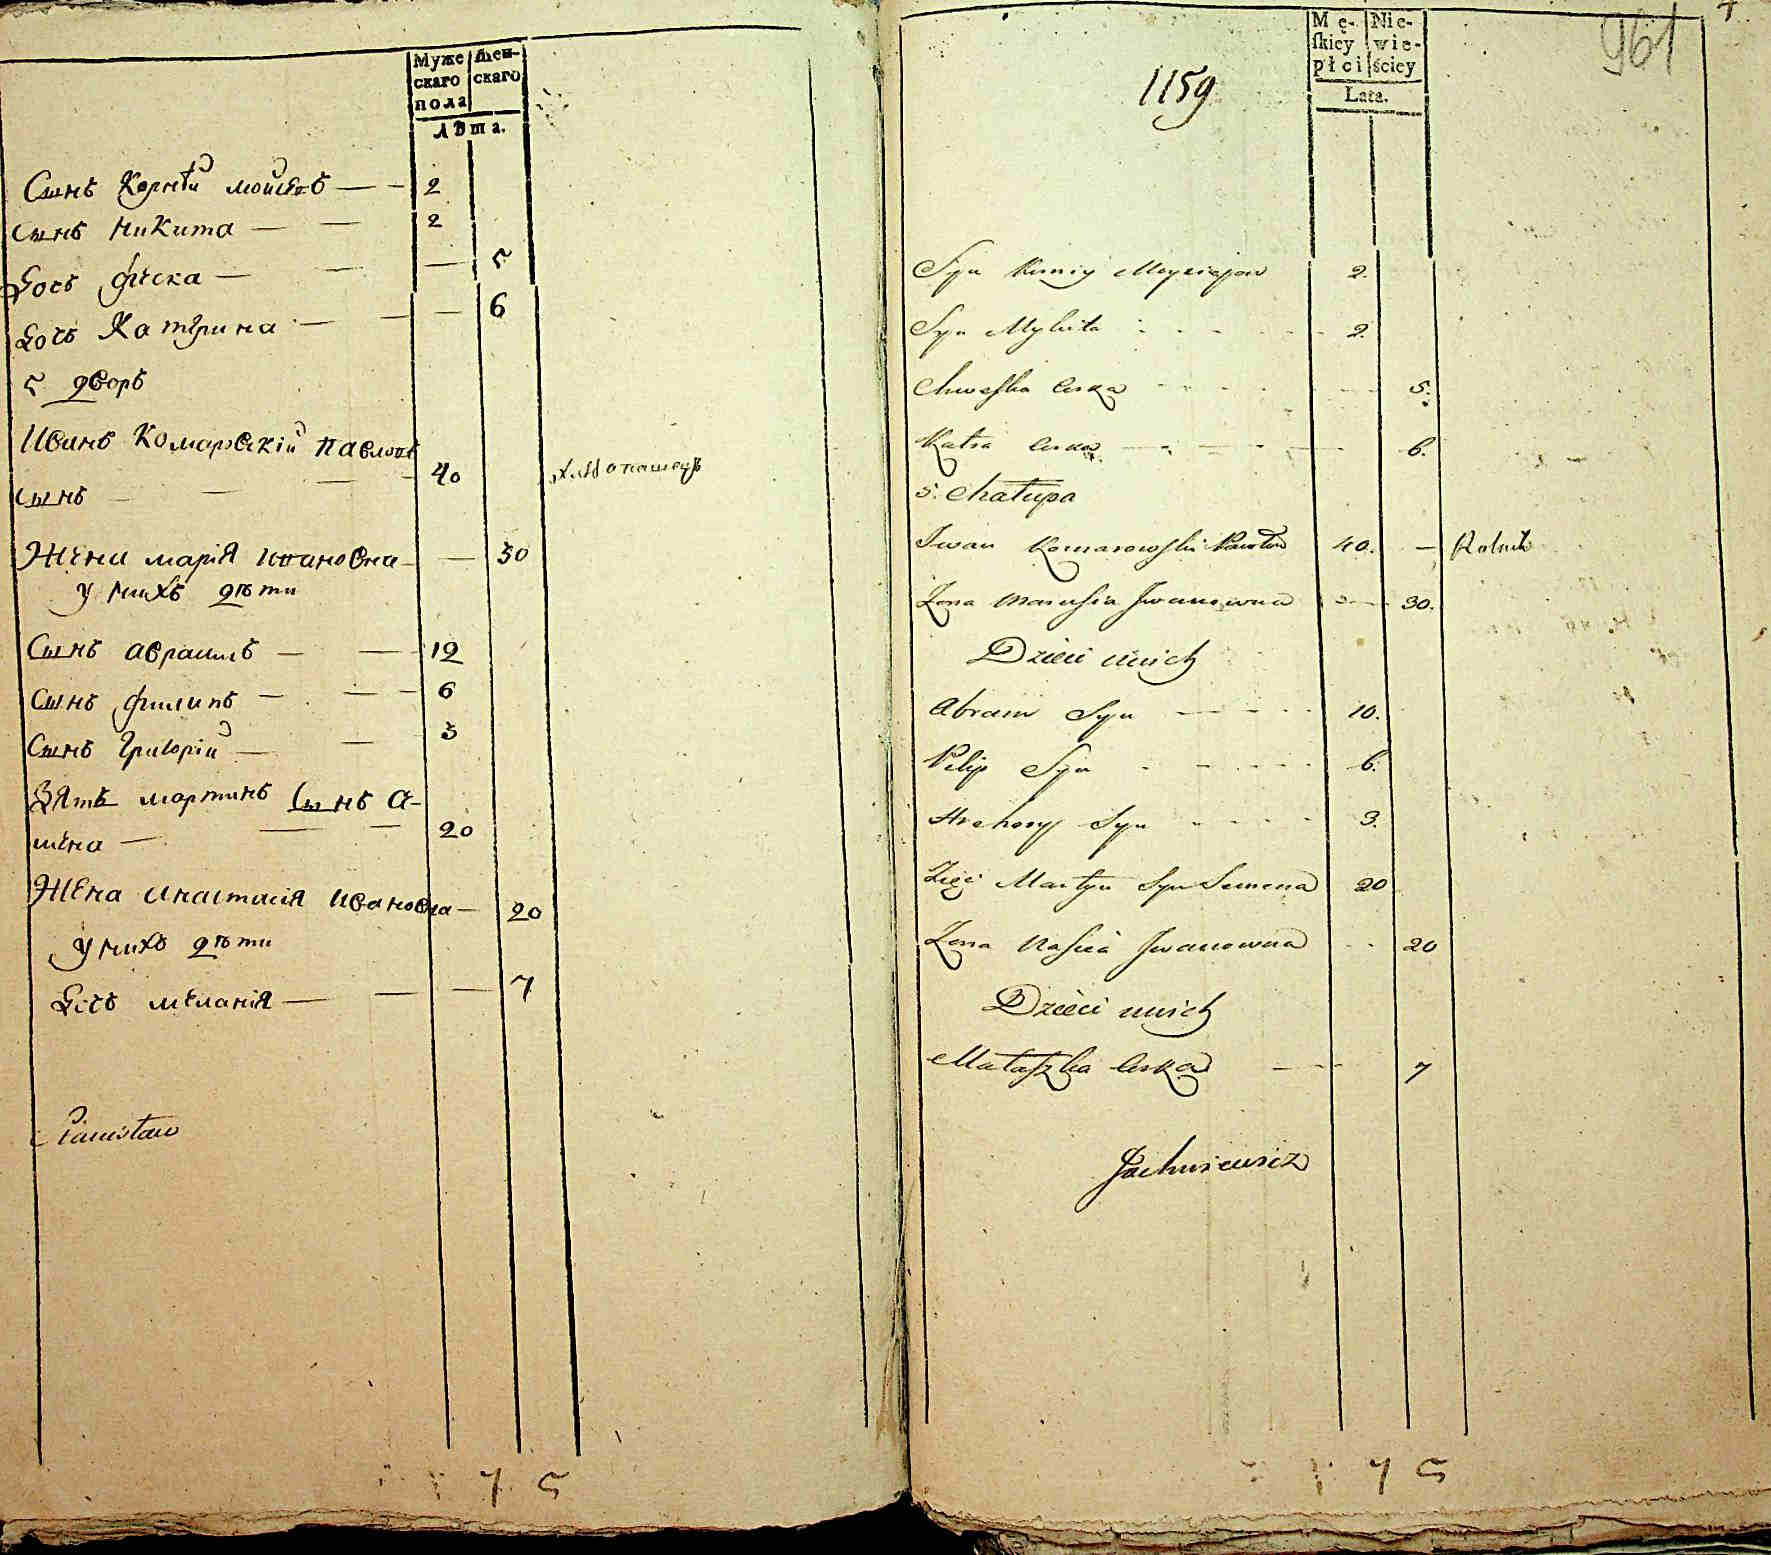 Муже
скаго
пола
Жен-
скаго
Лѣта.
Сынъ Корнѣй
2
Сынъ Никита
2
Дочь
5
Дочь Катерина
6
5 дворъ
Иванъ Комаровскій Павловъ
сынъ
40
Хлѣбопашецъ
Жена Марія Ивановна
30
у нихъ дѣти
Сынъ Авраамъ
12
Сынъ Филипъ
6
Сынъ Григорій
3
Зять Мартинъ Сынъ
20
Жена Анастасія Ивановна
20
у нихъ дѣти
Дочь Меланія
7
961
1159
Mę-
ſkiey
płci
Nie-
wie-
ściey
Lata.
Syn
2.
Syn Mykita
2.
Chweſka Curka
5.
Katra Curka
6.
5. Chałupa
Iwan Komarowſki Pawłow
40.
Rolnik
Zona Maruſia Iwanowna
30.
Dzieci unich
Abram Syn
10.
Pilip Syn
6.
Hrehory Syn
3.
Zięć Martyn Syn Semena
20
Zona Naſcia Iwanowna
20
Dzieci unich
Curka
7
Jachniewicz